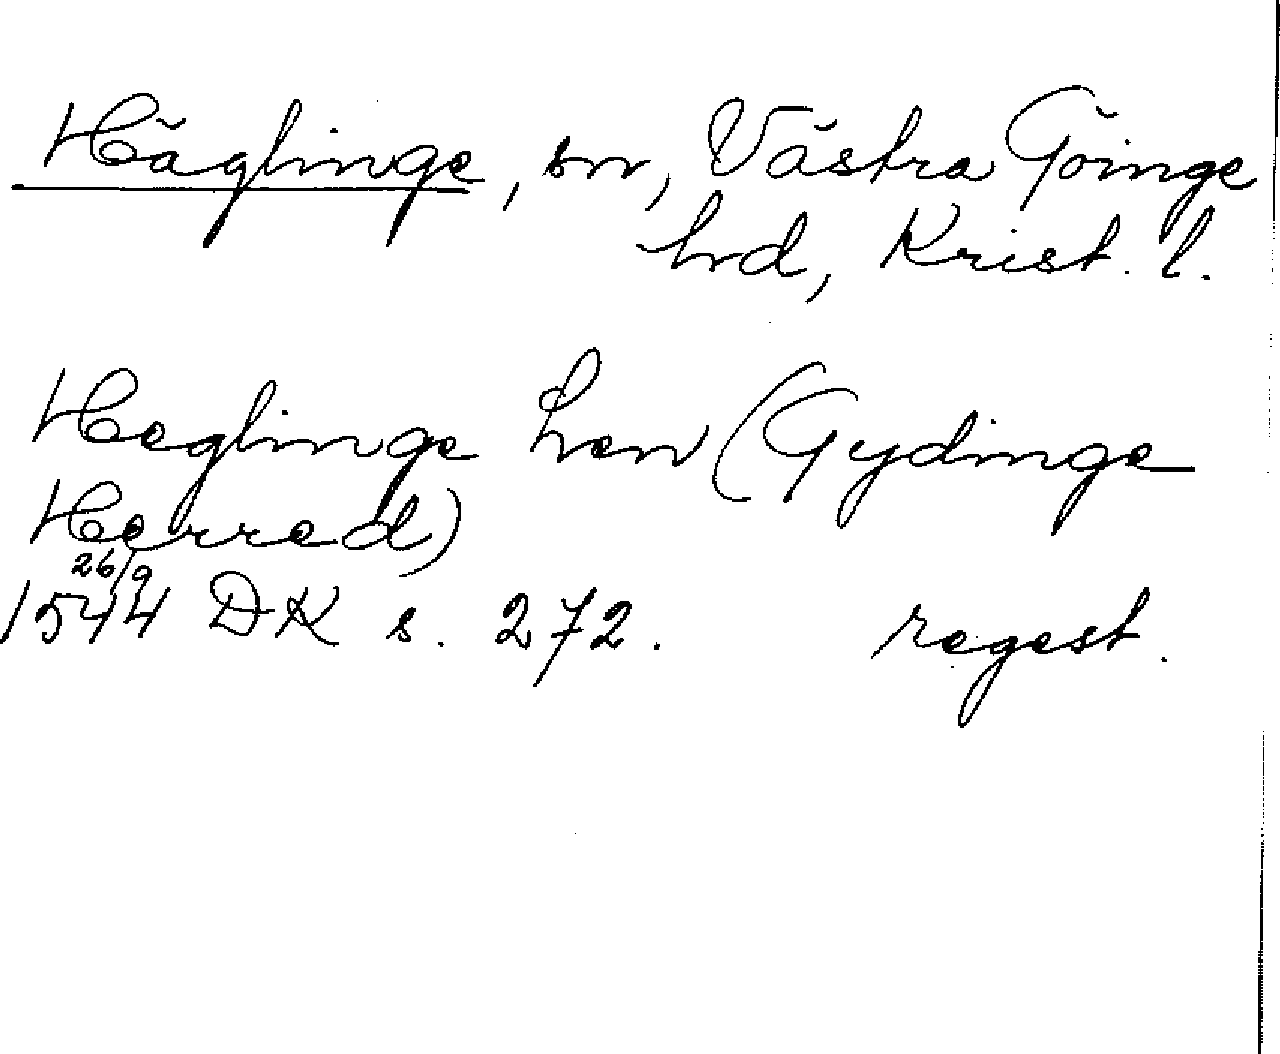 Häglinge, sn, Västra Göinge
hrd, Krist. l.
Heglinge Len (Gydinge
Herred)
26/9
1544 DK s. 272. regest.